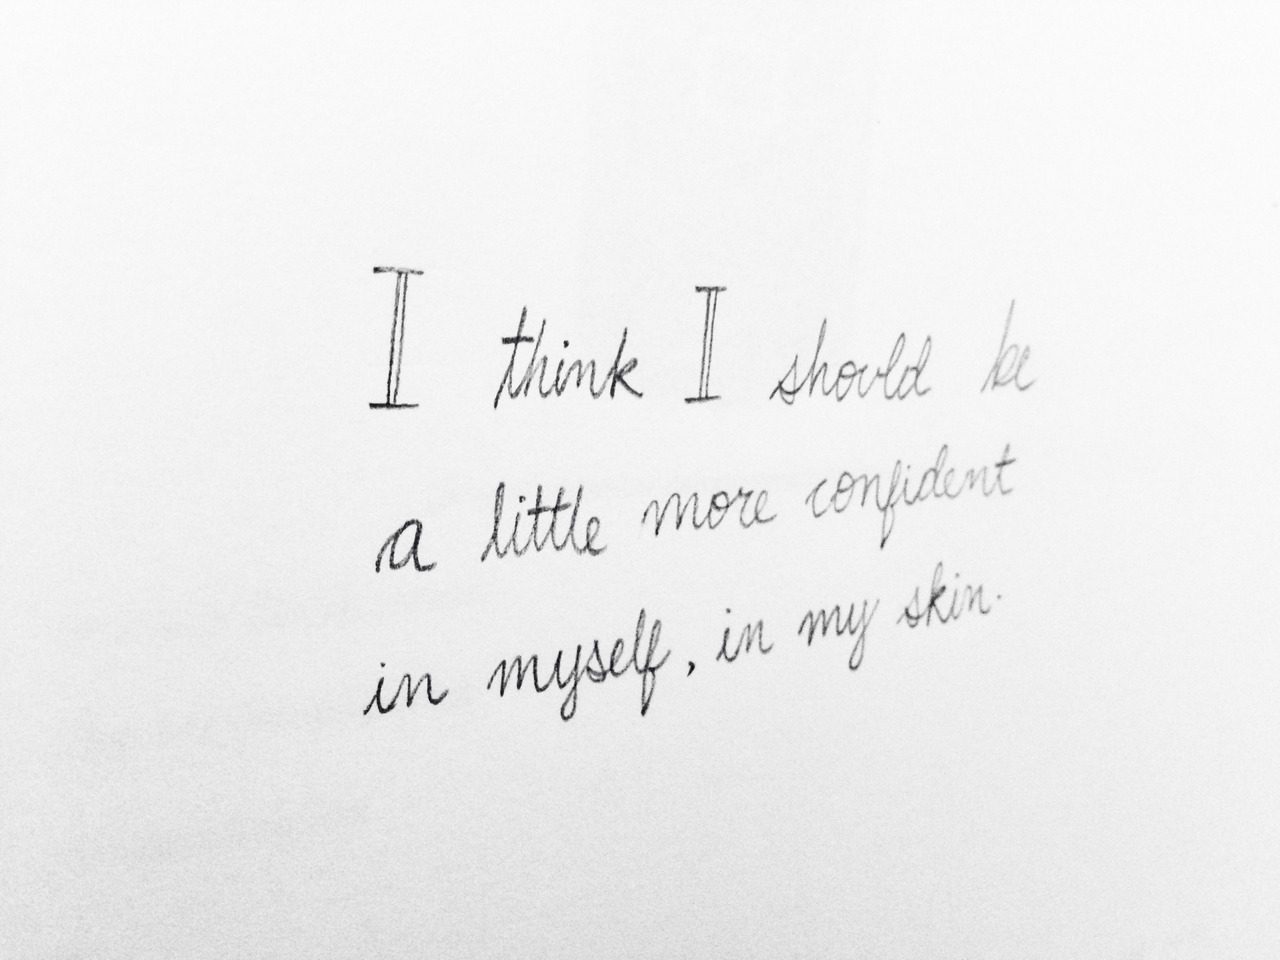 I think I should be
a little more confident
in myself, in my skin.